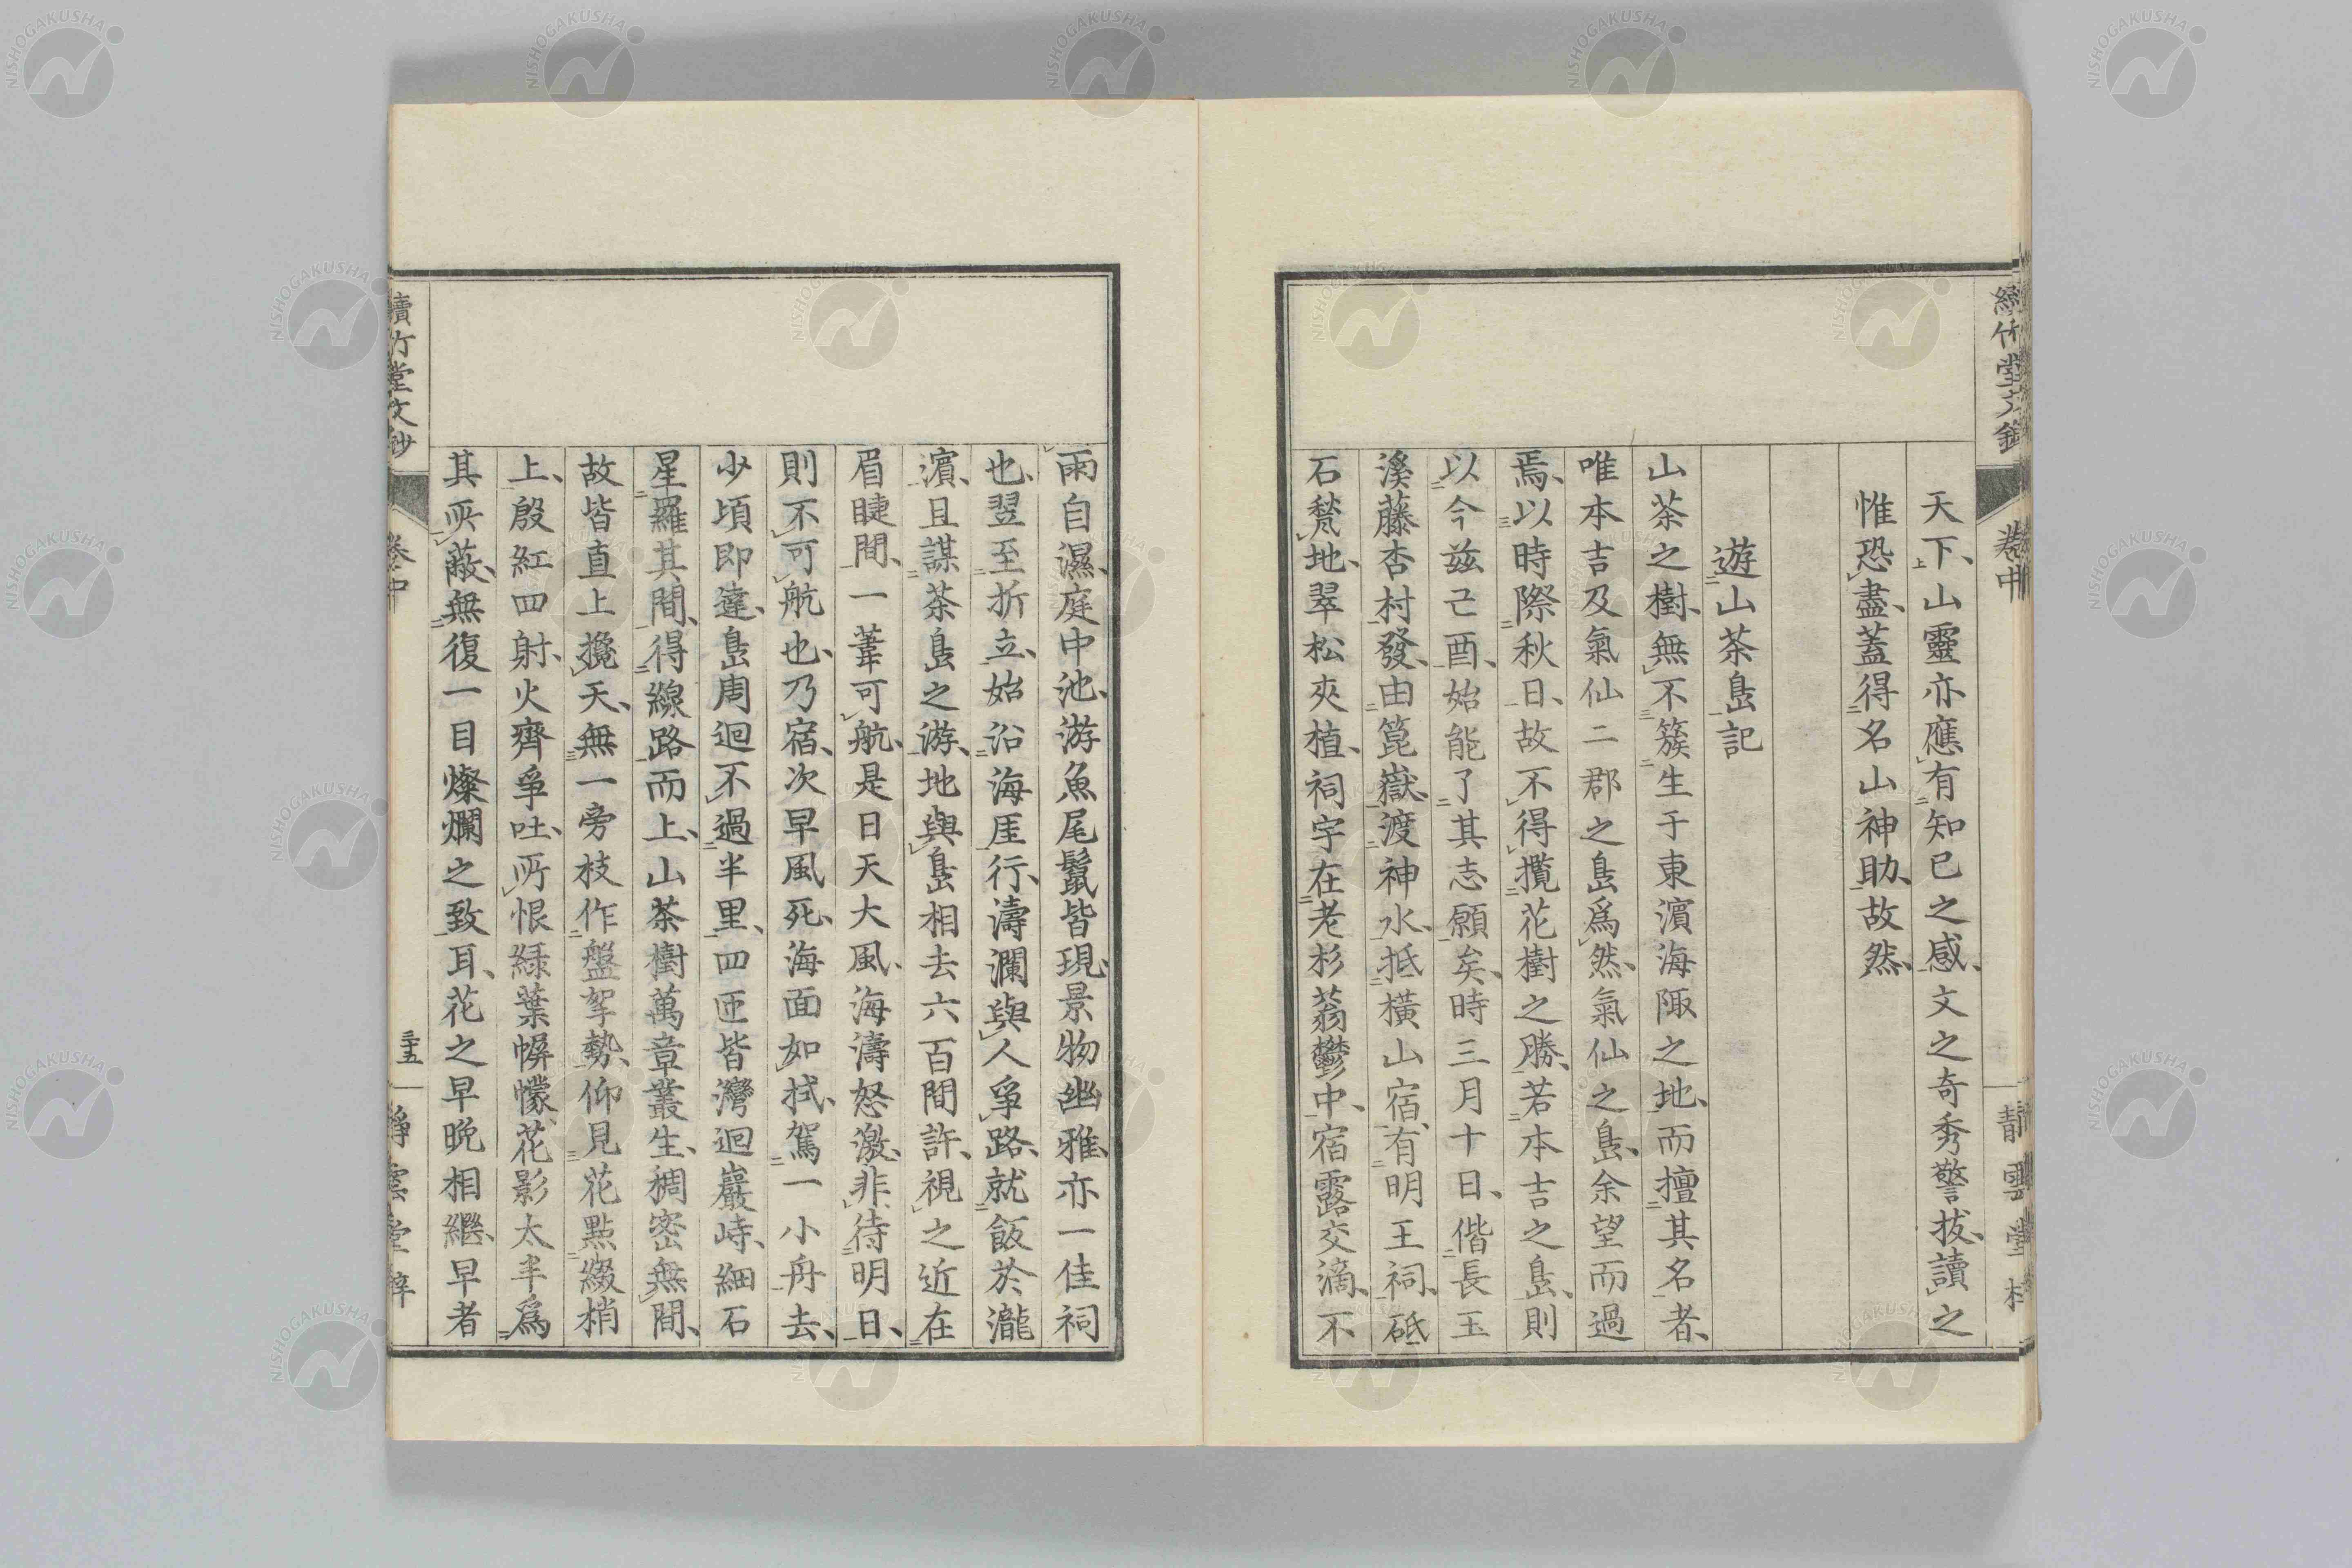 天下、山靈亦應有知已之感、文之奇秀警拔、讀之
惟恐盡、蓋得名山神助、故然、
遊山茶島記
山茶之樹、無不簇生于東濱海陬之地、而擅其名者、
唯本吉及氣仙二郡之島爲然、氣仙之島、余望而過
焉、以時際秋日、故不得攬花樹之勝、若本吉之島、則
以今茲己酉、始能了其志願矣、時三月十日、偕長玉
溪藤杏村發、由箟嶽、渡神水、抵橫山宿、有明王祠、砥
石甃地、翠松夾植、祠宇在老杉蓊鬱中、宿露交滴、不
雨自濕、庭中池、游魚尾鬣皆現、景物幽雅、亦一佳祠
也、翌至折立、始沿海厓行、濤瀾與人爭路、就飯於瀧
濱、且謀茶島之游、地與島相去六百間許、視之近在
眉睫間、一葦可航、是日天大風、海濤怒激、非待明日、
則不可航也、乃宿、次早風死、海面如拭、駕一小舟去、
少頃即達、島周迴不過半里、四匝皆灣迴巖峙、細石
星羅其間、得線路而上、山茶樹萬章叢生、稠密無間、
故皆直上攙天、無一旁枝作盤拏勢、仰見花點綴梢
上、殷紅四射、火齊爭吐、所恨綠葉幈幪、花影太半爲
其所蔽、無復一目燦爛之致耳、花之早晩相繼、早者
續竹堂文鈔
卷中
三十五
靜雲堂梓
NISHOGAKUSHA